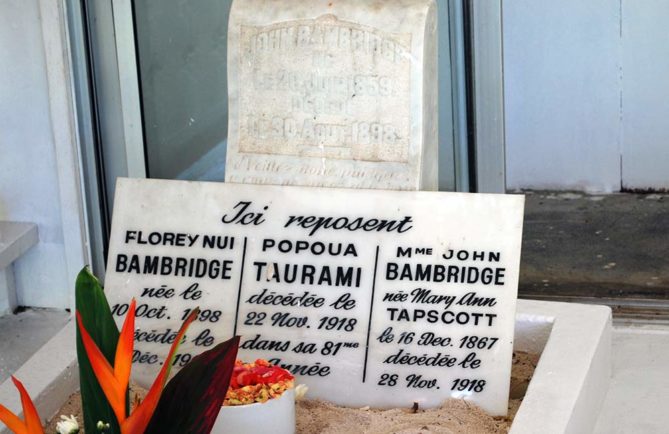 JOHN BAMBRIDGE
NÉ
LE 20 JUIN 1859
DÉCÉDÉ
LE 30 AOUT 1898
Ici reposent
FLOREY NUI
BAMBRIDGE
née le
10 Oct. 1898
décédée le
Déc. 19
POPOUA
TAURAMI
décédée le
22 Nov. 1918
dans sa 81ᵐᵉ
Année
Mᴹᴱ JOHN
BAMBRIDGE
née Mary Ann
TAPSCOTT
le 16 Dec. 1867
décédée le
28 Nov. 1918